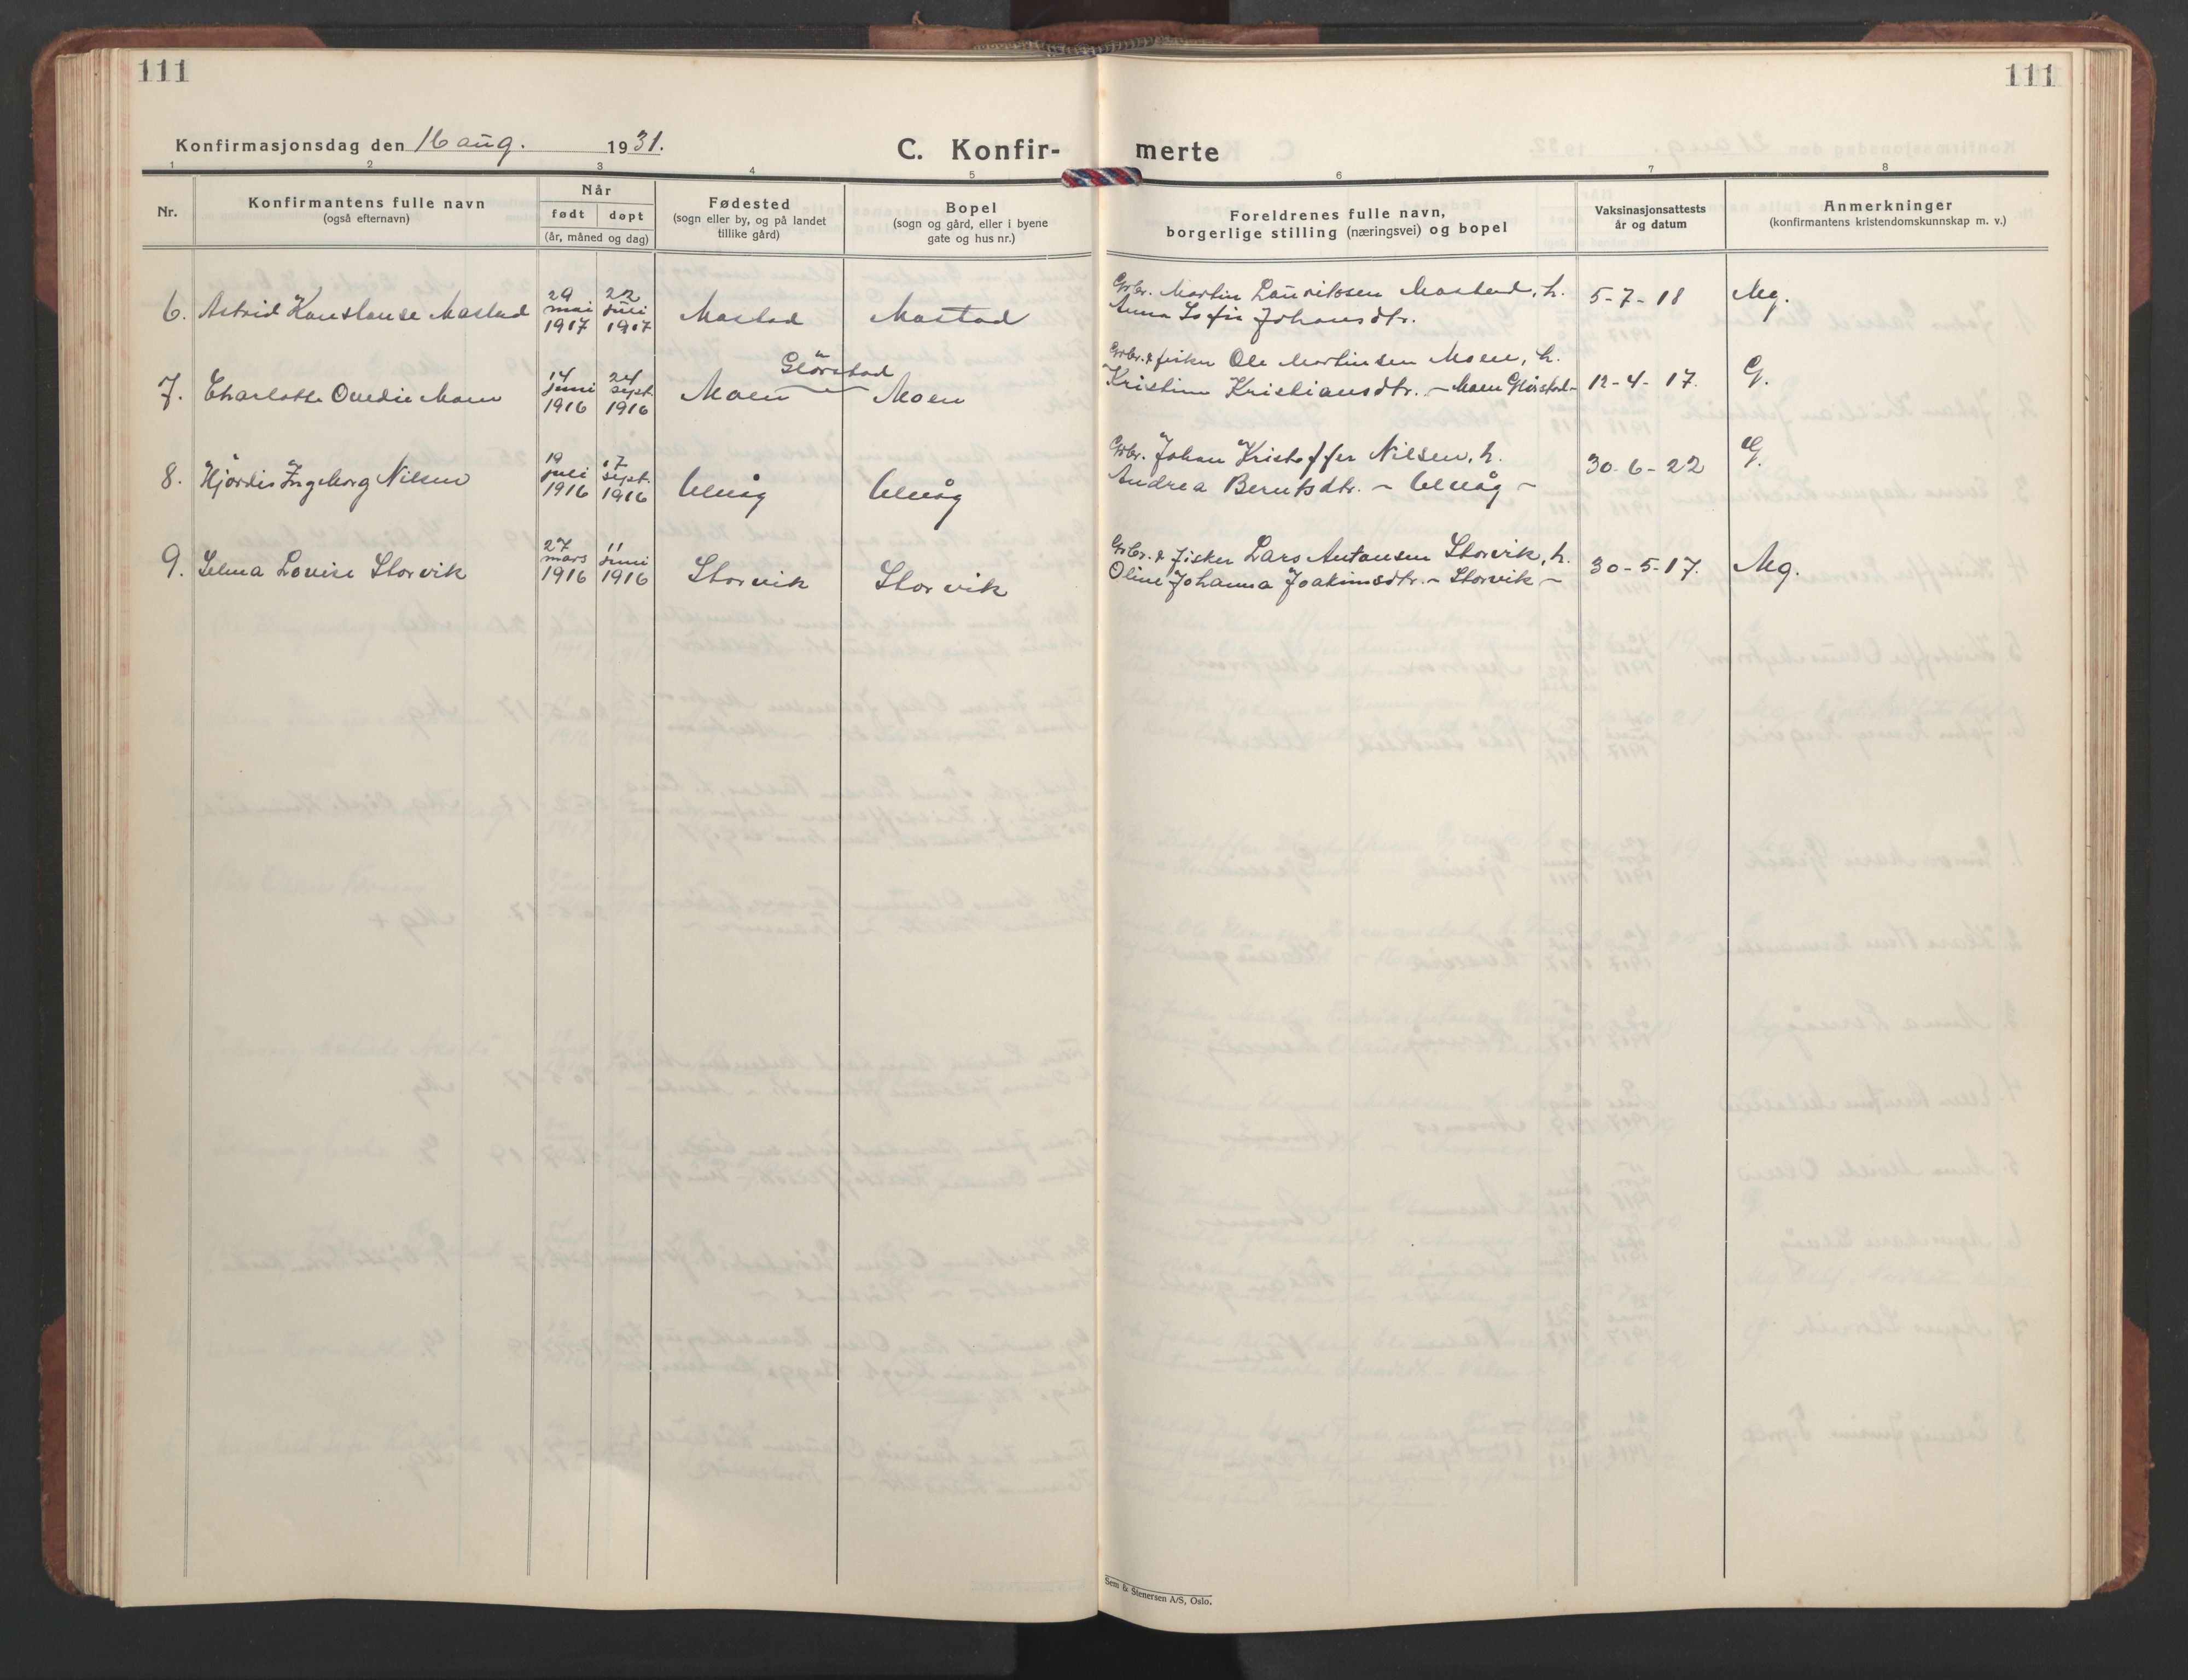 111
111
Konfirmasjonsdag den 16 aug. 1931.
C. Konfir-
merte
1 2 3 4 5 6 7 8
Nr.
Konfirmantens fulle navn
(også efternavn)
Når
født
døpt
(år, måned og dag)
Fødested
(sogn eller by, og på landet
tillike gård)
Bopel
(sogn og gård, eller i byene
gate og hus nr.)
Foreldrenes fulle navn,
borgerlige stilling (næringsvei) og bopel
Vaksinasjonsattests
år og datum
Anmerkninger
(konfirmantens kristendomskunnskap m. v.)
6. Astrid Konstanse Mastad
29 mai 1917
22 juli 1917
Mastad
Mastad
Grbr. Martin Lauritssen Mastad, h.
Anna Sofie Johansdtr.
5-7-18
Mg.
7. Charlotte Ovedie Moen
14 juni 1916
24 sept. 1916
Glörstad
Moen
Moen
Grbr. & fisker Ole Martinsen Moen, h.
Kristine Kristiansdtr. - Moen Glörstad -
12-4-17.
G.
8. Hjördis Ingeborg Nilsen
19 juli 1916
17 sept. 1916
Ulvåg
Ulvåg
Grbr. Johan Kristoffer Nilsen, h.
Andrea Berntsdtr. - Ulvåg -
30-6-22
G.
9. Selma Lovise Storvik
27 mars 1916
11 juni 1916
Storvik
Storvik
Grbr. & fisker Lars Antonsen Storvik, h.
Oline Johanna Joakimsdtr. - Storvik -
30-5-17.
Mg.
Sem & Stenersen A/S, Oslo.